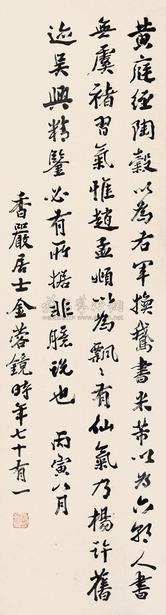 黄庭经陶穀以為右軍換鵞書米芾以為六朝人書
無虞褚習氣惟趙孟頫以為飄々有仙氣乃楊許舊
迹吴興精鑒必有所据非臆说也 丙寅八月
香嚴居士金蓉鏡時年七十有一